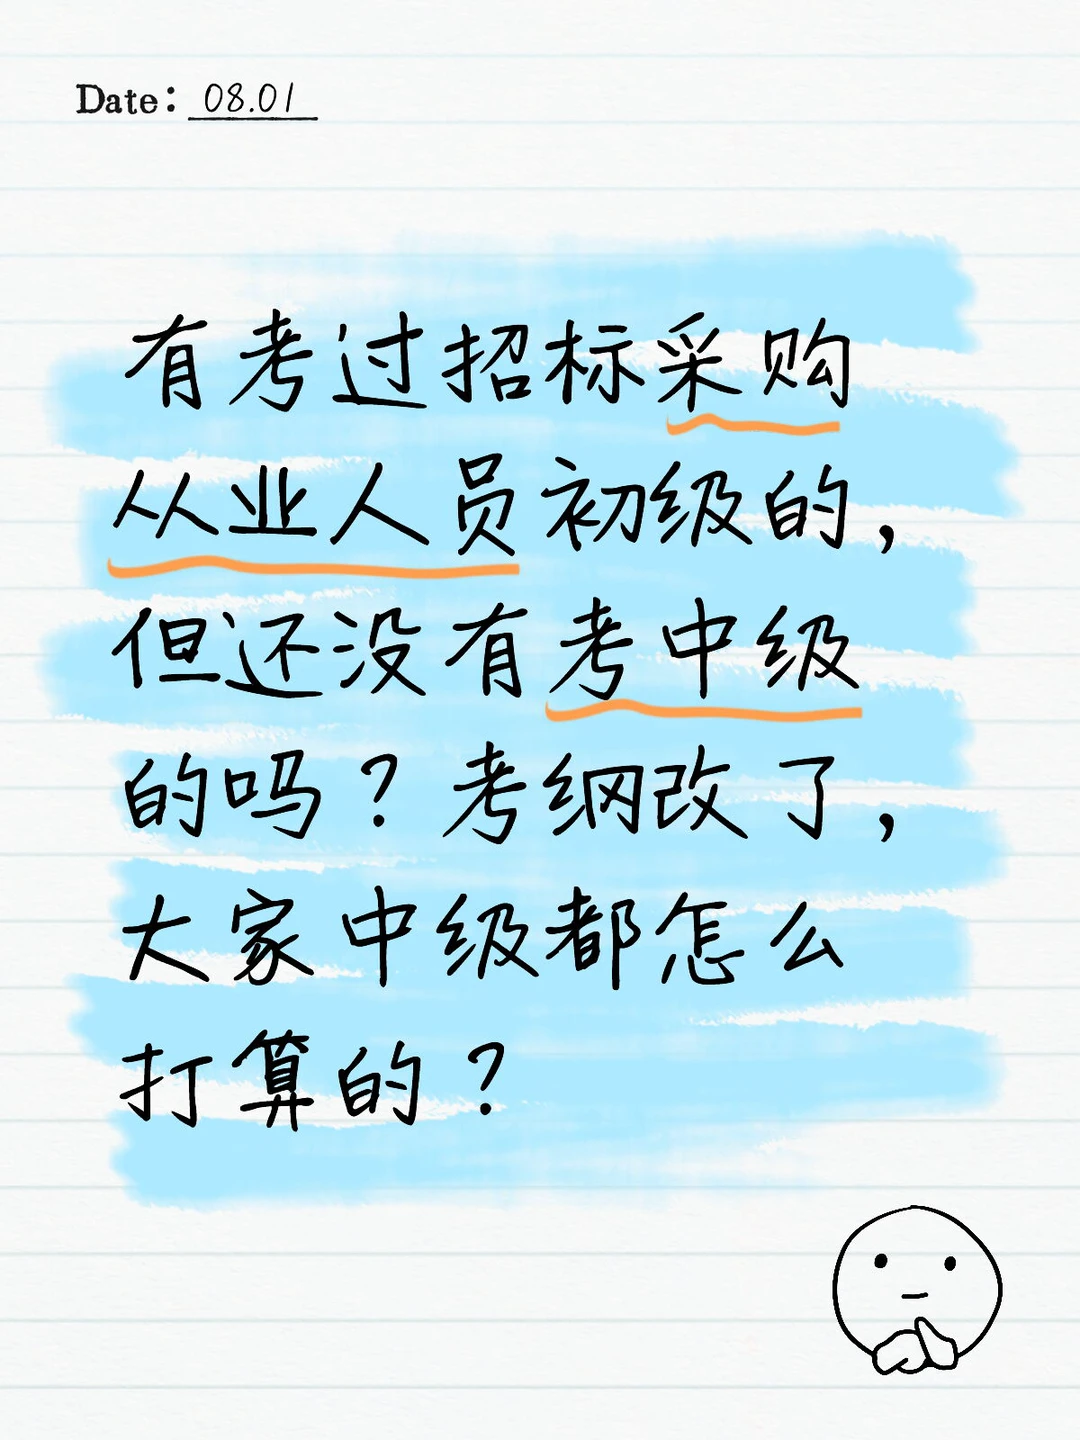 Date: 08.01
有考过招标采购
从业人员初级的，
但还没有考中级
的吗？考纲改了，
大家中级都怎么
打算的？